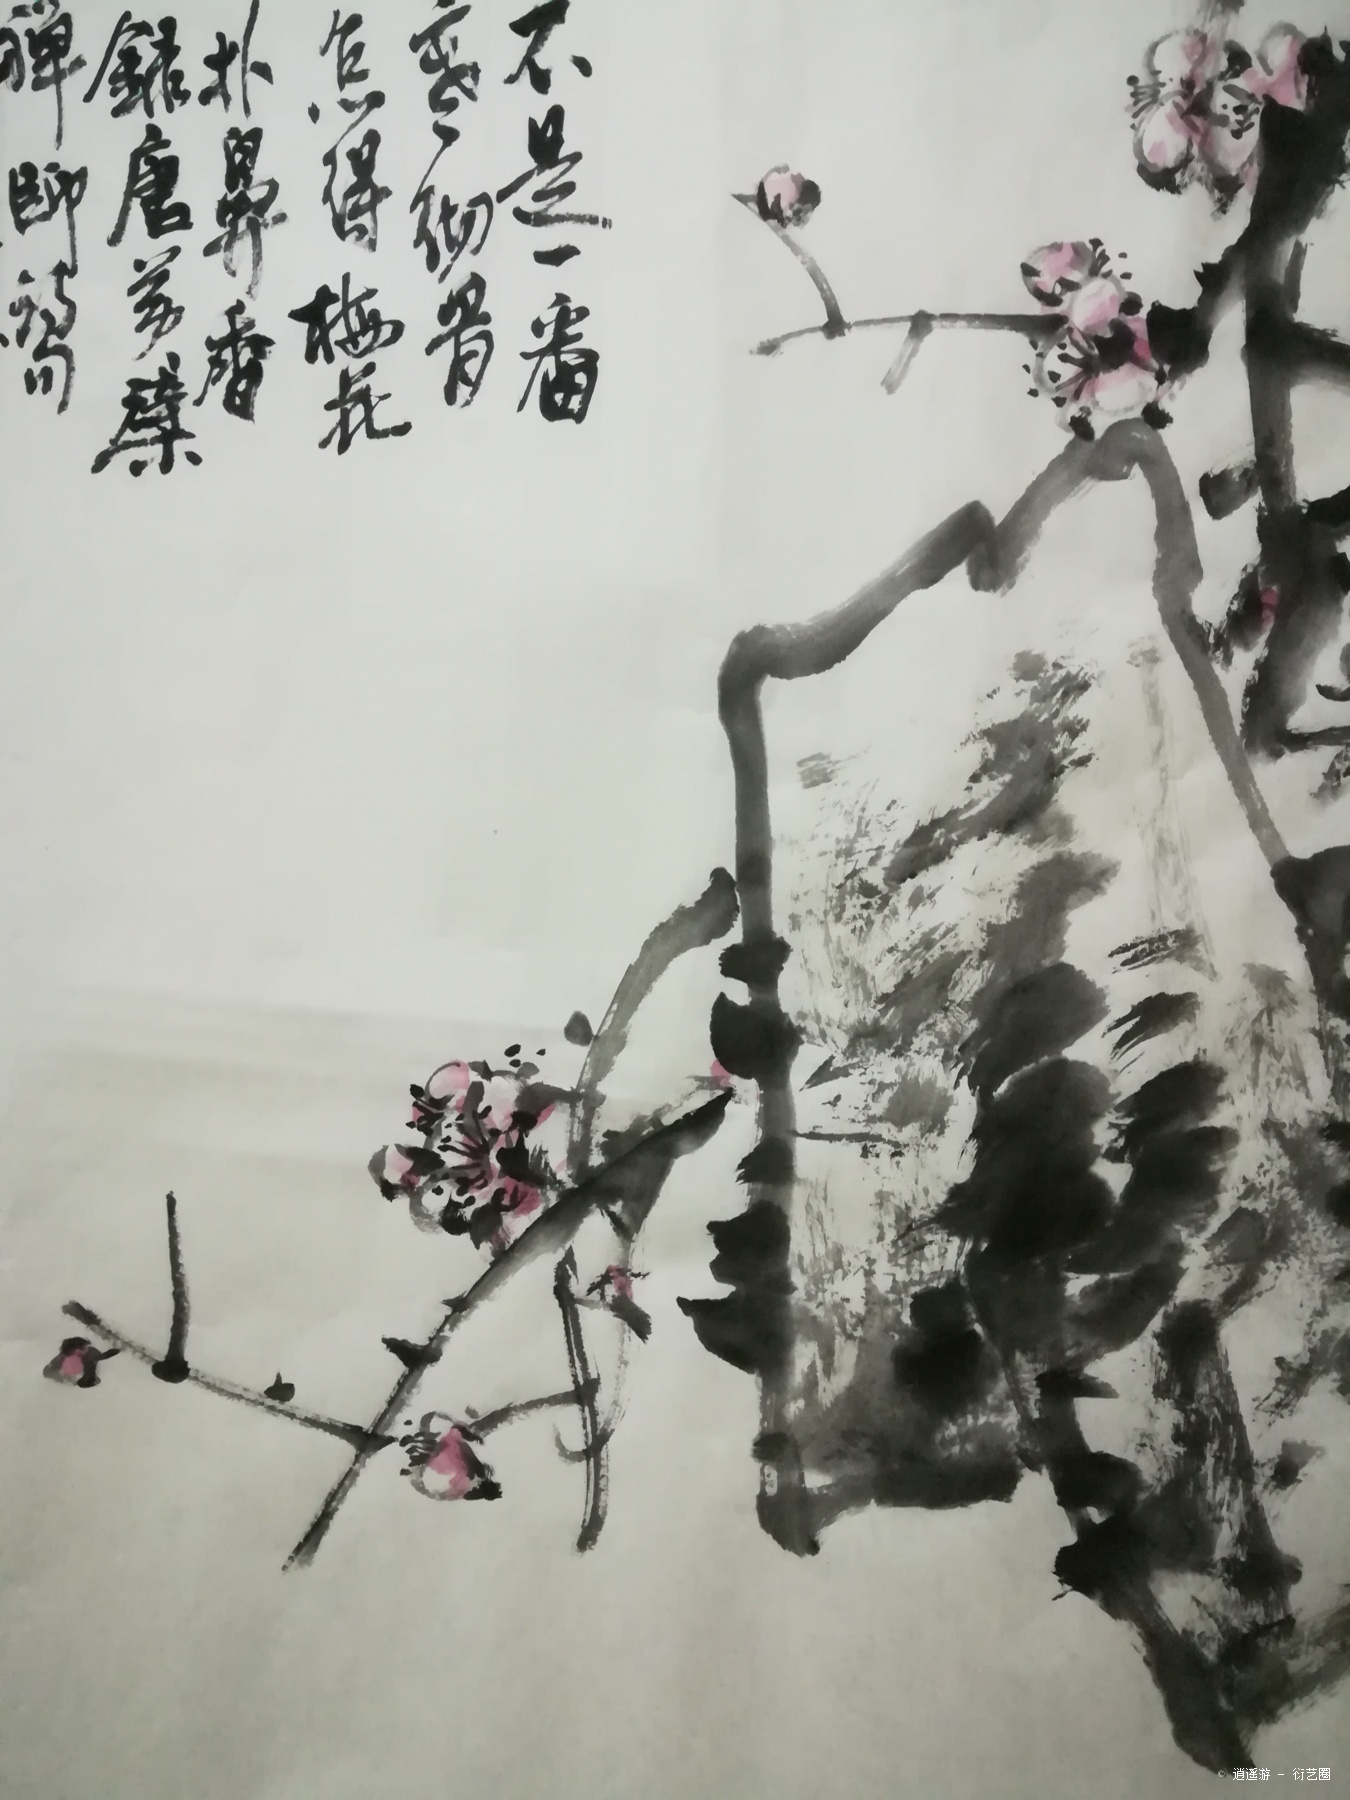 不是一番
寒彻骨
怎得梅花
扑鼻香
録唐黄檗
禅師詩句
© 逍遥游 - 衍艺圈